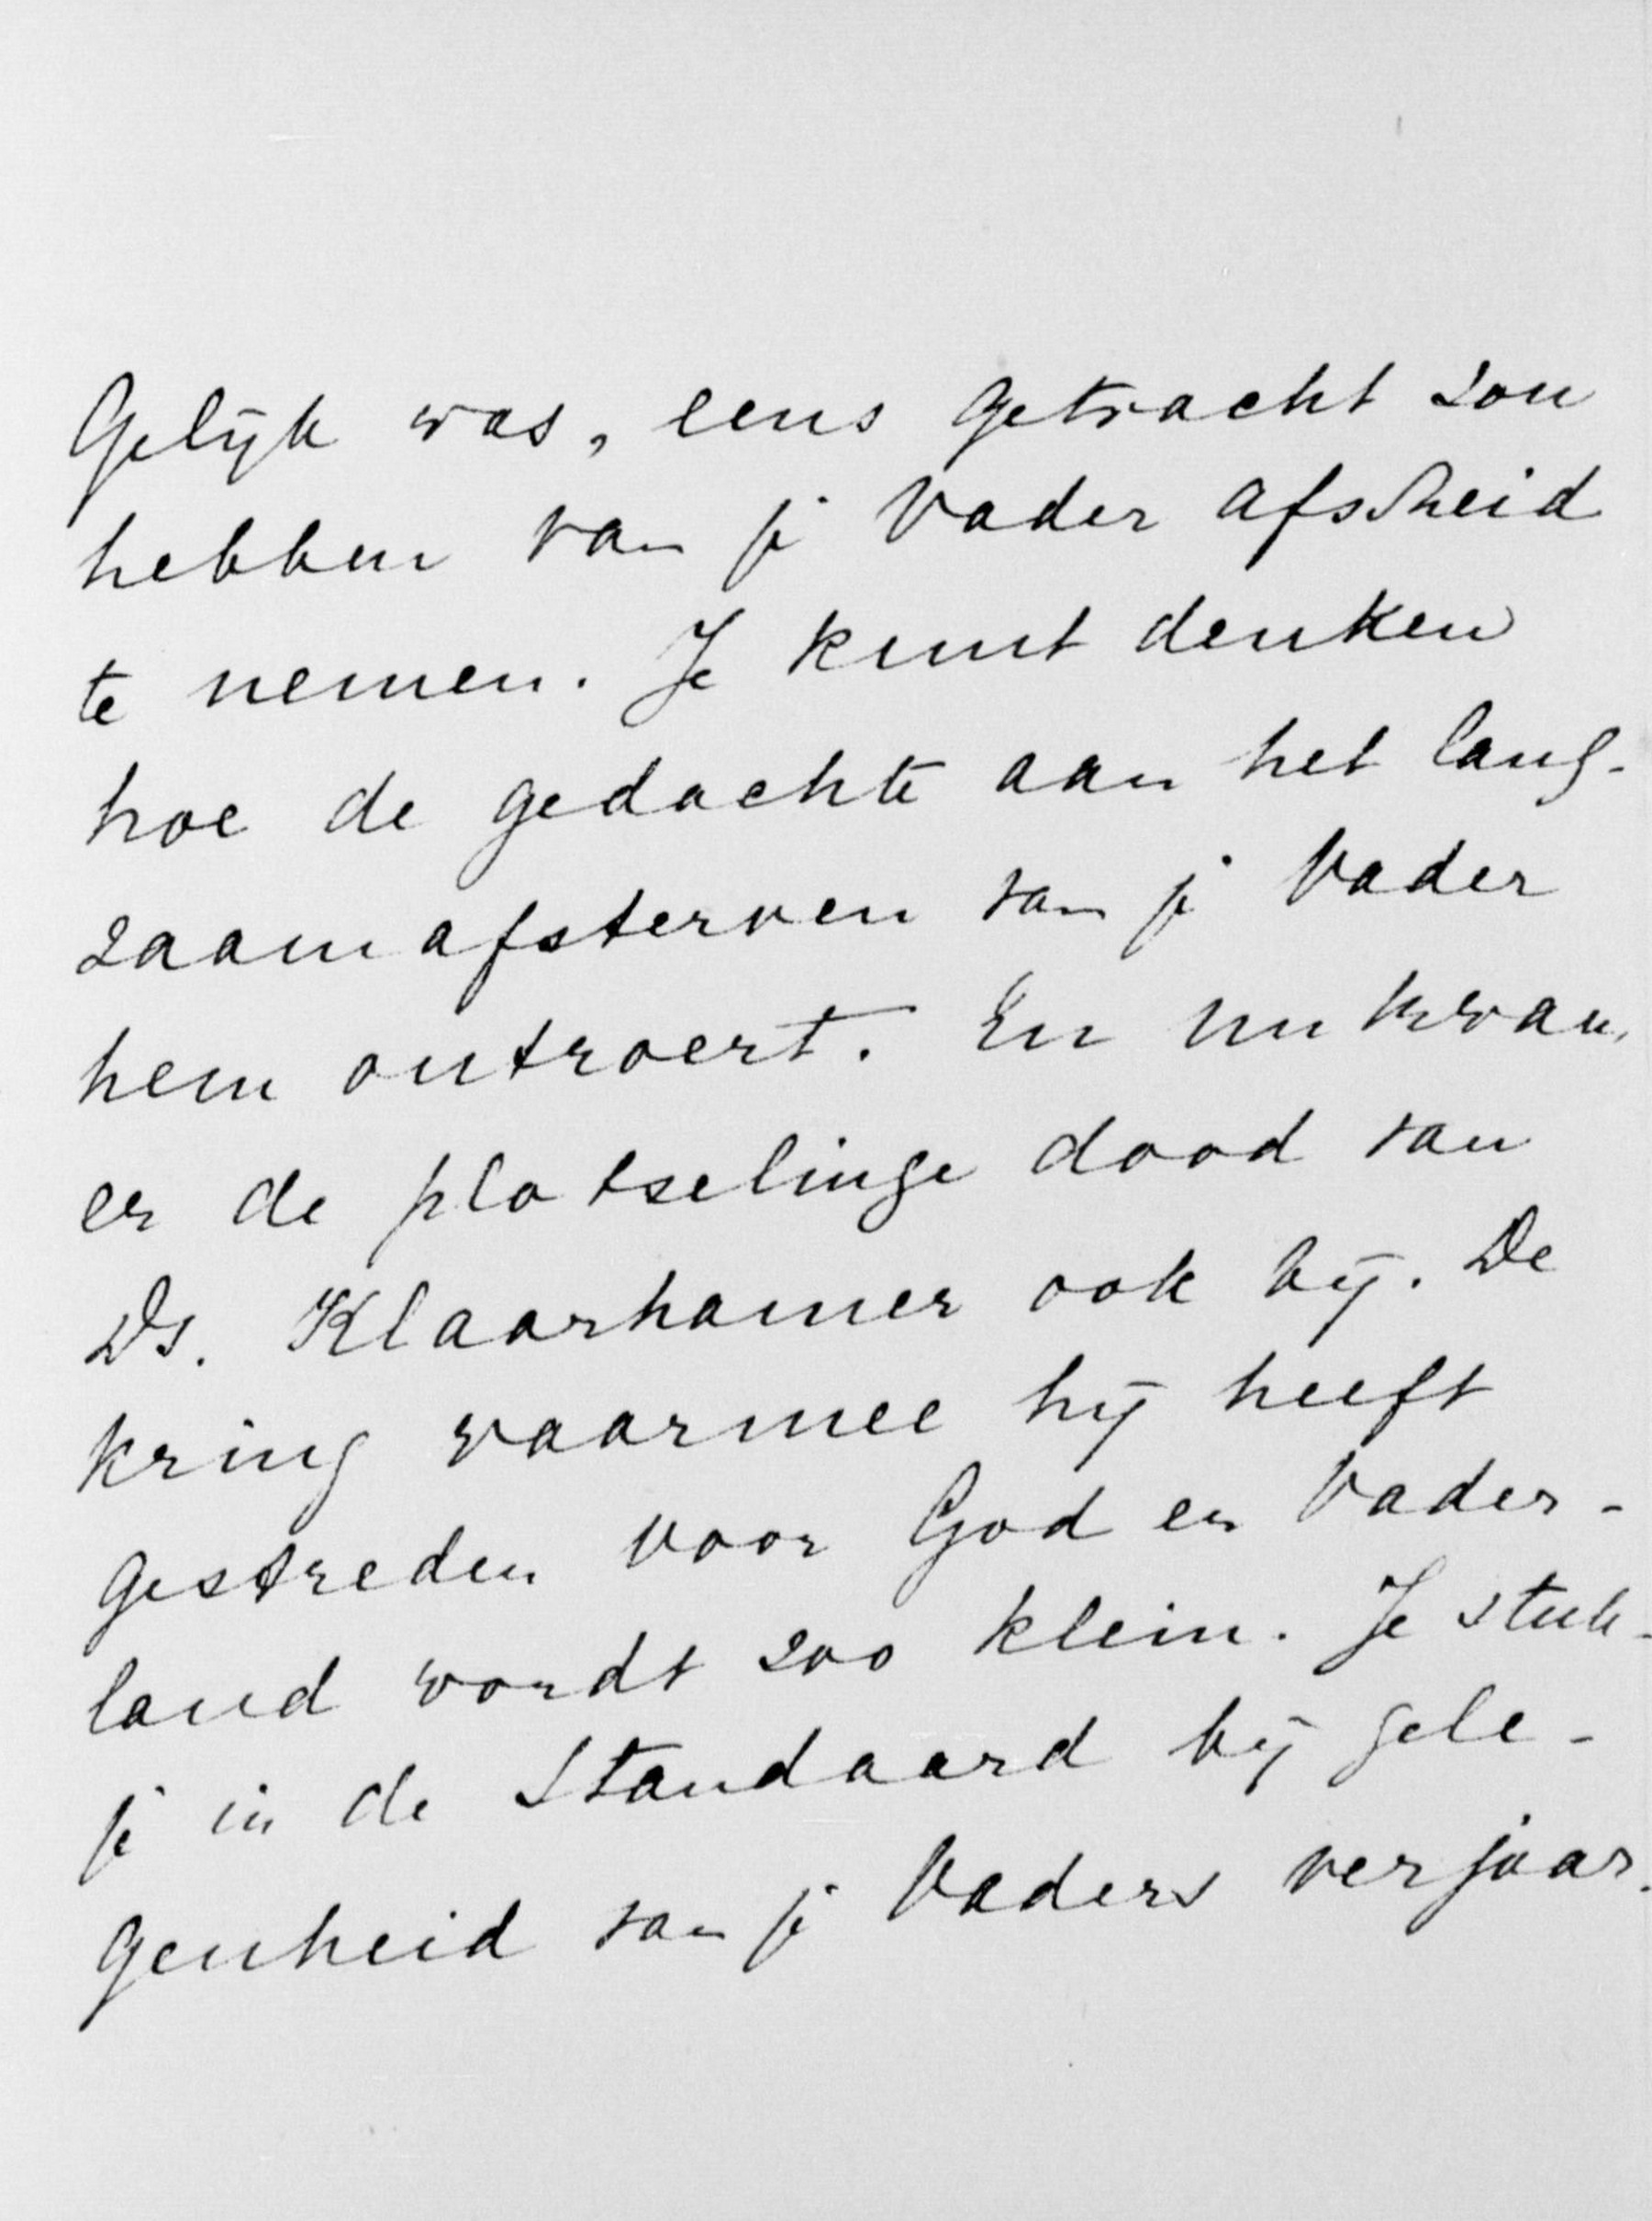 gelijk was, eens getracht zou
hebben van je Vader afscheid
te nemen. Je kunt denken
hoe de gedachte aan het lang-
zaam afsterven van je Vader
hem ontroert. En nu kwam
er de plotselinge dood van
Ds. Klaarhamer ook bij. De
kring waarmee hij heeft
gestreden voor God en Vader-
land wordt zoo klein. Je stuk-
je in de Standaard bij gele-
genheid van je Vaders verjaar-